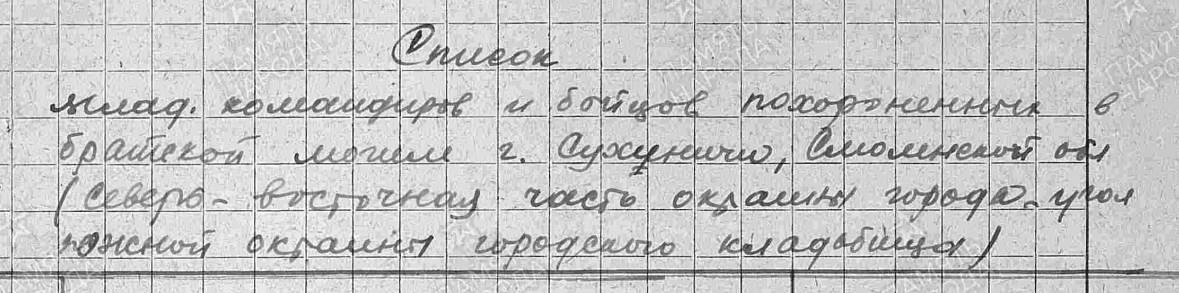 Список
млад. командиров и бойцов похороненных в
братской могиле г. Сухуничи, Смоленской обл
(северо-восточная часть окраины города. угол
южной окраины городского кладбища)